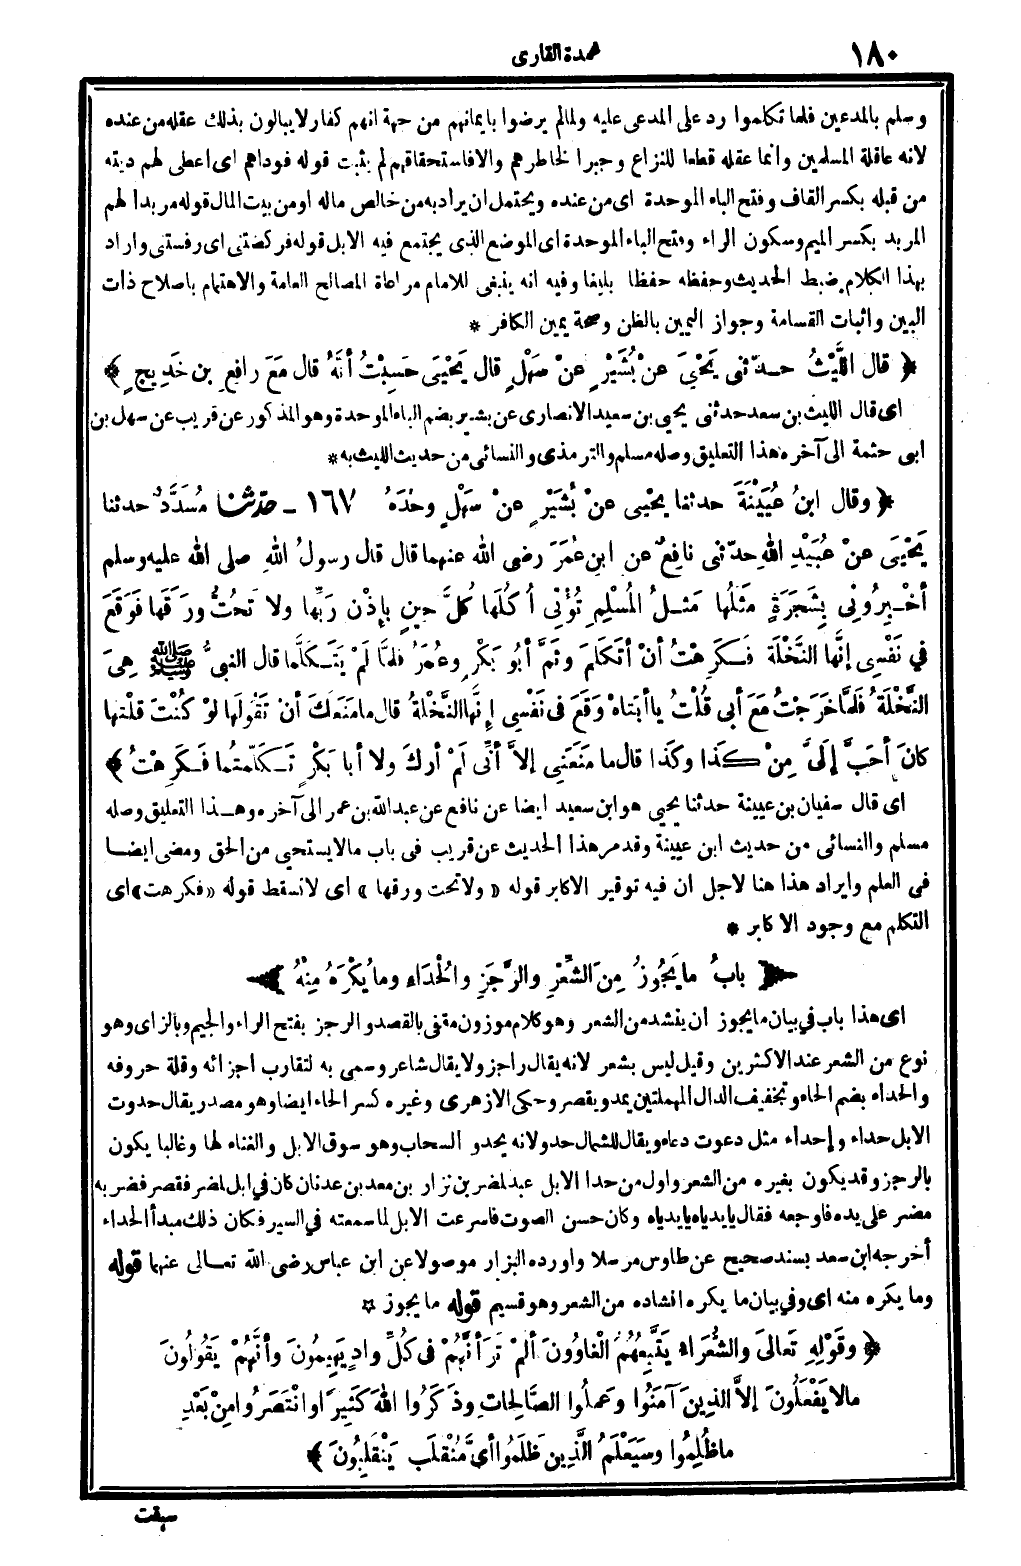 ١٨٠
عمدة القارى
وسلم بالمدعين فلما تكلموا رد على المدعى عليه ولما لم يرضوا بايمانهم من جهة انهم كفار لا يبالون بذلك عقله من عنده
لانه عاقلة المسلمين وانما عقله قطعا للنزاع وجبرا لخاطرهم والا فاستحقاقهم لم يثبت قوله فوداهم اى اعطى لهم ديته
من قبله بكسر القاف وفتح الباء الموحدة اى من عنده ويحتمل ان يراد به من خالص ماله او من بيت المال قوله مربدا لهم
المربد بكسر الميم وسكون الراء وفتح الباء الموحدة اى الموضع الذى يجتمع فيه الابل قوله فركضتنى اى رفستنى واراد
بهذا الكلام ضبط الحديث وحفظه حفظا بليغا وفيه انه ينبغى للامام مراعاة المصالح العامة والاهتمام باصلاح ذات
البين واثبات القسامة وجواز اليمين بالظن وصحة يمين الكافر *
﴿ قال اللَّيْثُ حدّثنى يَحْيَىَ عنْ بُشَيْرٍ عنْ سَهْلٍ قال يَحْيَى حَسِبْتُ أنَّهُ قال مَعَ رافِعِ بنِ خَدِيجٍ ﴾
اى قال الليث بن سعد حدثنى يحيى بن سعيد الانصارى عن بشير بضم الباء الموحدة وهو المذكور عن قريب عن سهل بن
ابى حثمة الى آخره هذا التعليق وصله مسلم والترمذى والنسائى من حديث الليث به *
﴿ وقال ابنُ عُيَيْنَةَ حدثنا يحْيى عنْ بُشَيْرٍ عنْ سَهْلٍ وحْدَهُ ١٦٧ ـ حدّثنا مُسَدَّدٌ حدثنا
يَحْيَى عنْ عُبَيْدِ اللهِ حدّثنى نافِعٌ عنِ ابنِ عُمَرَ رضى الله عنهما قال قال رسولُ اللهِ صلى الله عليه وسلم
أخْبِرُونِى بِشَجَرَةٍ مَثَلُها مَثَلُ المُسْلِمِ تُؤْتِى أُكُلَها كُلَّ حِينٍ بإذْنِ رَبِّها ولا تَحُتُّ ورَقَها فَوَقَعَ
فى نَفْسِى إنَّها النَّخْلَةُ فَكَرِهْتُ أنْ أتَكَلَّمَ وثَمَّ أبُو بَكْرٍ وعُمَرُ فلمَّا لَمْ يَتَكَلَّما قال النبىُّ ﷺ هِىَ
النَّخْلَةُ فَلمَّا خَرَجْتُ مَعَ أبِى قُلْتُ يا أبَتاهْ وَقَعَ فى نَفْسِى إنَّها النَّخْلَةُ قال ما مَنَعَكَ أنْ تَقُولَها لوْ كُنْتَ قُلْتَها
كانَ أحَبَّ إلَىَّ مِنْ كَذا وكَذا قال ما مَنَعَنِى إلاَّ أنِّى لَمْ أرَكَ ولا أبا بَكْرٍ تَكَلَّمْتُما فَكَرِهْتُ ﴾
اى قال سفيان بن عيينة حدثنا يحيى هو ابن سعيد ايضا عن نافع عن عبدالله بن عمر الى آخره وهذا التعليق وصله
مسلم والنسائى من حديث ابن عيينة وقد مر هذا الحديث عن قريب فى باب مالا يستحيى من الحق ومضى ايضا
فى العلم وايراد هذا هنا لاجل ان فيه توقير الاكابر قوله « ولا تحت ورقها » اى لا تسقط قوله «فكرهت» اى
التكلم مع وجود الاكابر *
﴿ بابُ ما يَجُوزُ مِنَ الشِّعْرِ والرَّجَزِ والْحُدَاءِ وما يُكْرَهُ مِنْهُ ﴾
اى هذا باب فى بيان ما يجوز ان ينشد من الشعر وهو كلام موزون مقفى بالقصد والرجز بفتح الراء والجيم وبالزاى وهو
نوع من الشعر عند الاكثرين وقيل ليس بشعر لانه يقال راجز ولا يقال شاعر وسمى به لتقارب اجزائه وقلة حروفه
والحداء بضم الحاء وتخفيف الدال المهملتين يمد ويقصر وحكى الازهرى وغيره كسر الحاء ايضا وهو مصدر يقال حدوت
الابل حداء وإحداء مثل دعوت دعاء ويقال للشمال حدو لانه يحدو السحاب وهو سوق الابل والغناء لها وغالبا يكون
بالرجز وقد يكون بغيره من الشعر واول من حدا الابل عبد لمضر بن نزار بن معد بن عدنان كان فى ابل لمضر فقصر فضربه
مضر على يده فاوجعه فقال يايدياه يايدياه وكان حسن الصوت فاسرعت الابل لما سمعته فى السير فكان ذلك مبدأ الحداء
أخرجه ابن سعد بسند صحيح عن طاوس مرسلا واورده البزار موصولا عن ابن عباس رضى الله تعالى عنهما قوله
وما يكره منه اى وفى بيان ما يكره انشاده من الشعر وهو قسيم قوله ما يجوز *
﴿ وقَوْلِهِ تَعالىَ والشُّعَرَاءُ يَتَّبِعُهُمُ الْغاوُونَ ألَمْ تَرَ أنَّهُمْ فى كُلِّ وادٍ يَهِيمُونَ وأنَّهُمْ يَقُولُونَ
مالا يَفْعَلُونَ إلاَّ الَّذِينَ آمَنُوا وعَمِلُوا الصَّالِحاتِ وذَكَرُوا اللهَ كَثِيرًا وانْتَصَرُوا مِنْ بَعْدِ
ما ظُلِمُوا وسَيَعْلَمُ الَّذِينَ ظَلَمُوا أىَّ مُنْقَلَبٍ يَنْقَلِبُونَ ﴾
سبقت